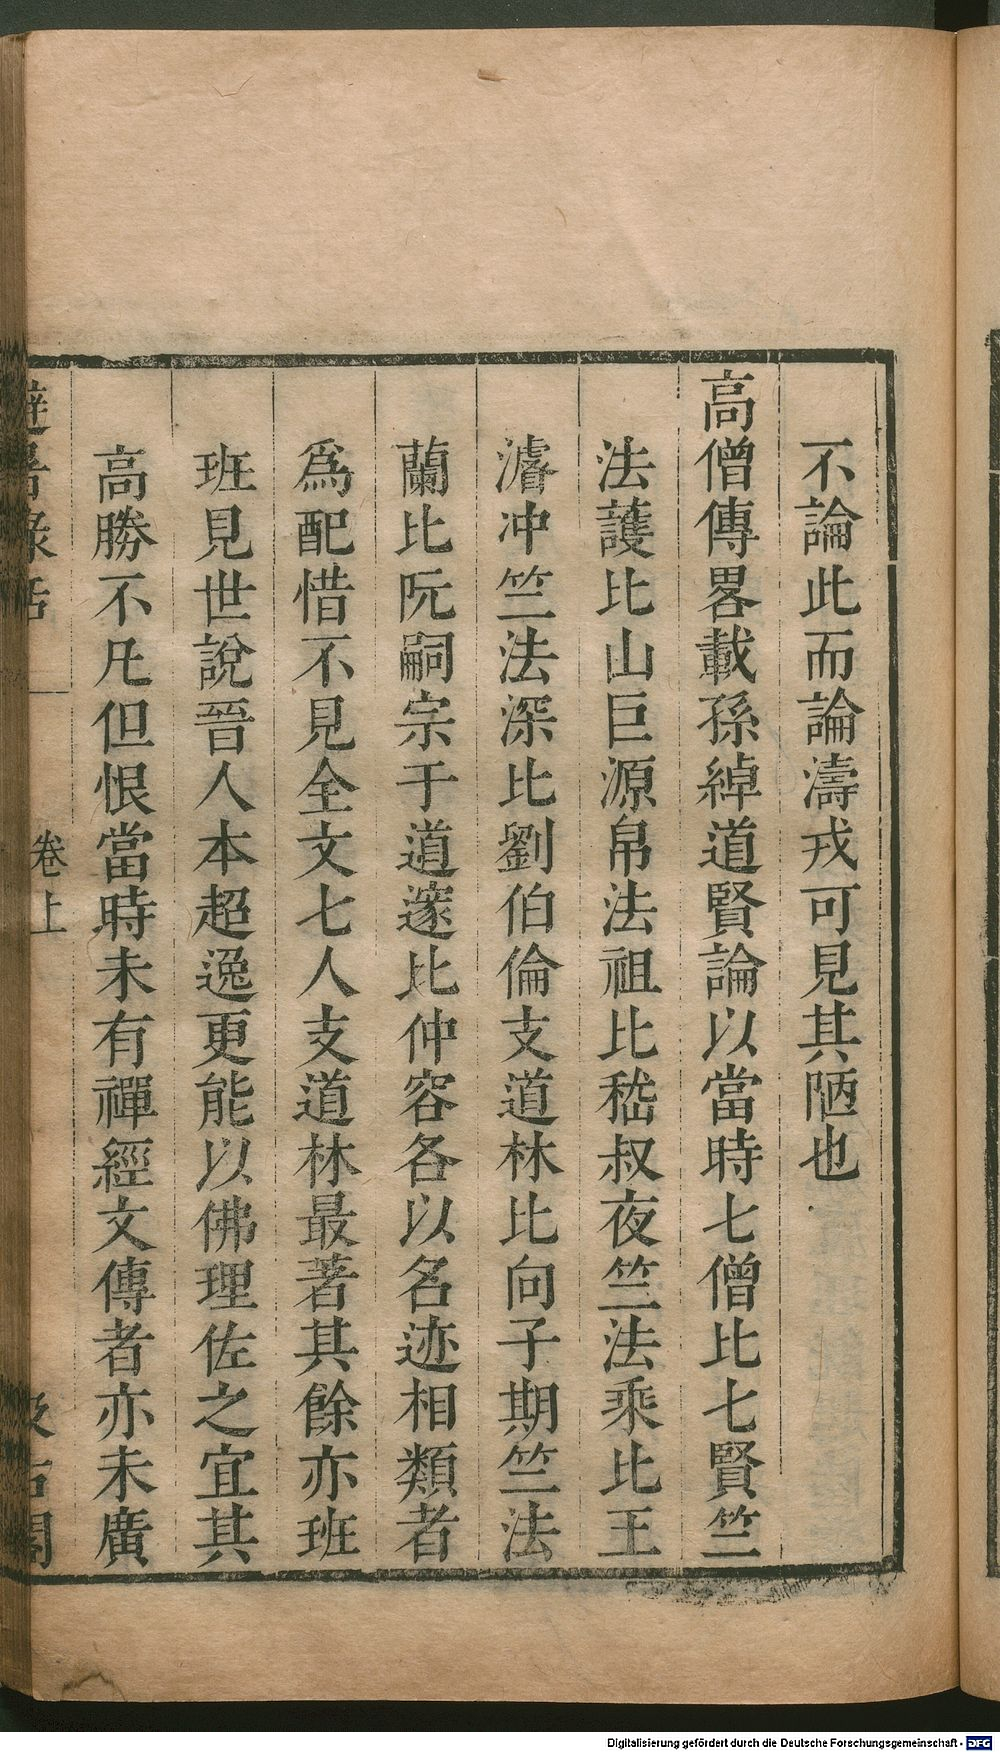 不論此而論濤戎可見其陋也
高僧傳畧載孫綽道賢論以當時七僧比七賢竺
法護比山巨源帛法祖比嵇叔夜竺法乘比王
濬冲竺法深比劉伯倫支道林比向子期竺法
蘭比阮嗣宗于道邃比仲容各以名迹相類者
爲配惜不見全文七人支道林最著其餘亦班
班見世說晉人本超逸更能以佛理佐之宜其
高勝不凡但恨當時未有禪經文傳者亦未廣
避暑錄話
卷上
汲古閣
Digitalisierung gefördert durch die Deutsche Forschungsgemeinschaft - DFG